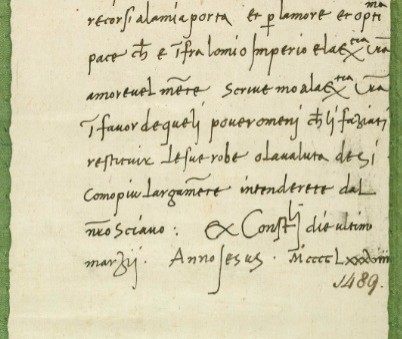 recorsi ala mia porta et p̲ lamore et opti^ma
pace ch̄ e īfra lo mio Imperio e la ex^tia vr̄a
amorevel mēte scrivemo ala ex^tia vr̄a
ī favor de queli poveromenj ch̄ li faziati
restituir le sue robe o la valuta de si
como piu largamēte intenderete dal
nr̄o sciavo : Ex Const^lj die ultimo
marzij . Anno Jesus . MCCCCLxxxviiij
1489.